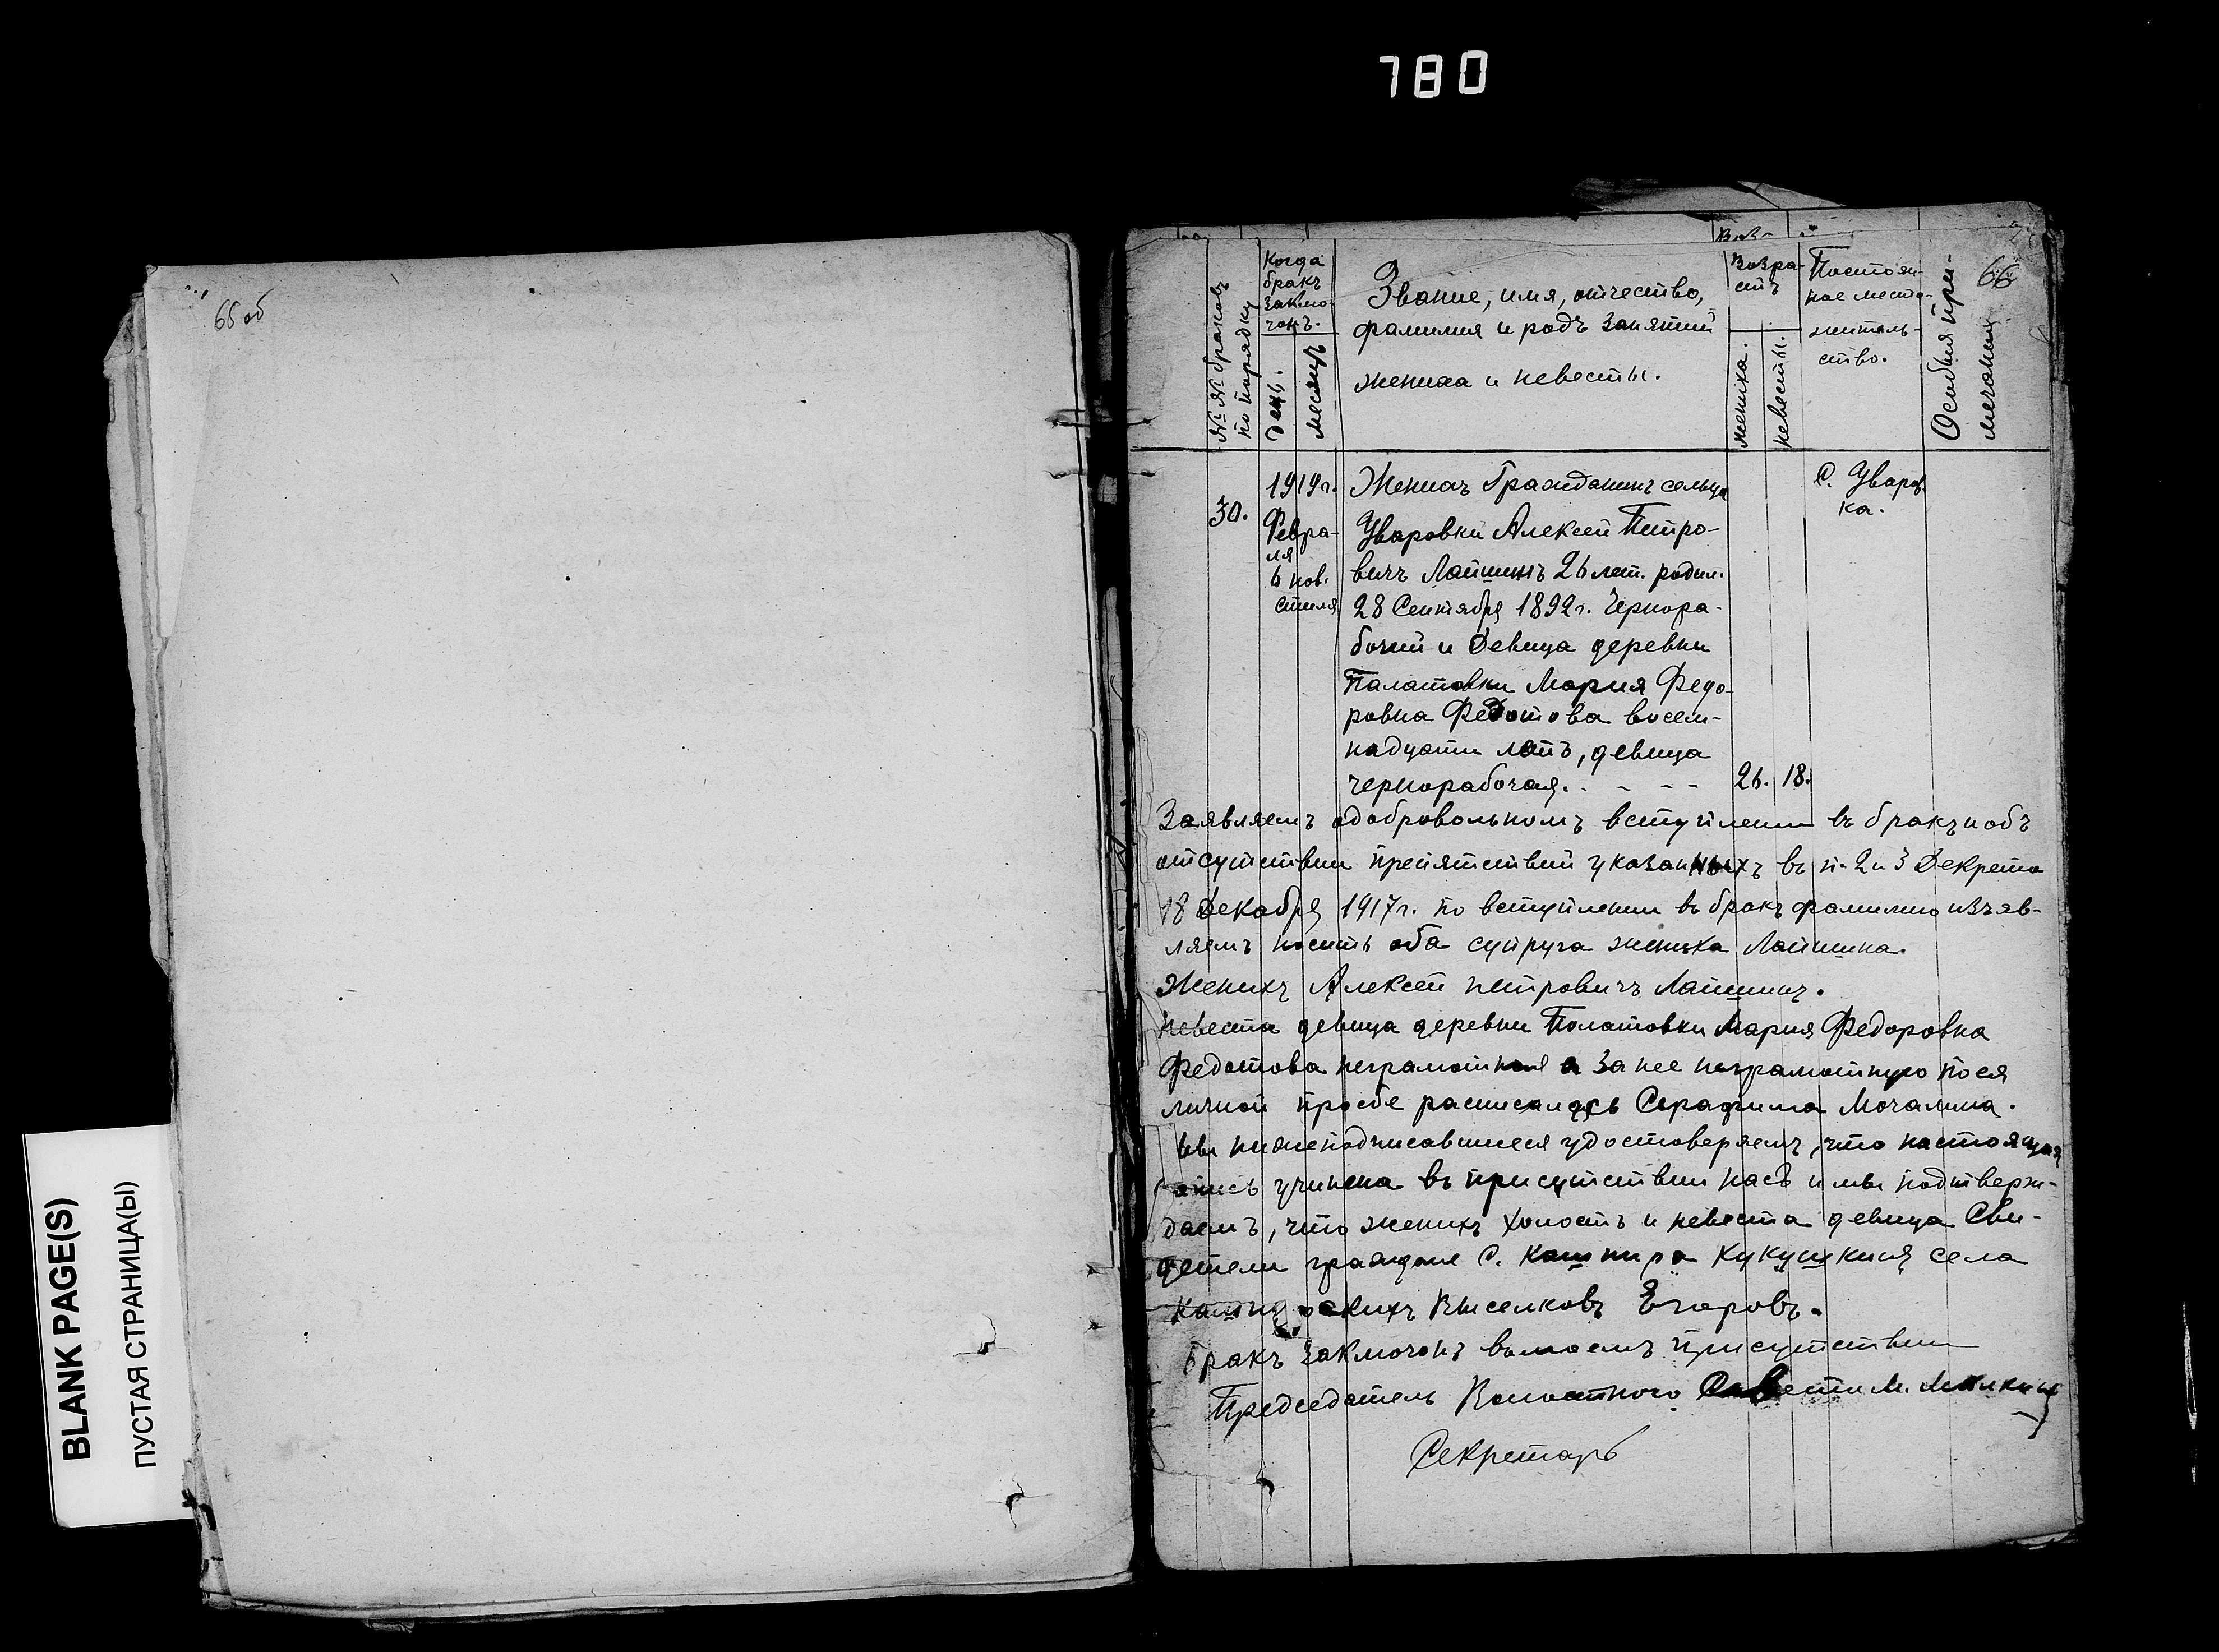 780
65 об
BLANK PAGE(S)
ПУСТАЯ СТРАНИЦА(Ы)
66
№ № браковъ
по порядку
Когда
бракъ
заклю-
чонъ.
День.
Месяцъ
Звание, имя, отчество,
фамилия и родъ занятий
жениха и невесты.
Возра-
стъ
жениха.
невесты.
Постоян-
ное место-
житель-
ство.
Особыя при-
мечания
30.
1919 г.
Февра-
ля
6 нов.
стиля
Женихъ Гражданинъ сельца
Уваровки Алексей Петро-
вичъ Лапшинъ 26 лет. родил.
28 Сентября 1892 г. Чернора-
бочий и Девица деревни
Палатовки Мария Федо-
ровна Федотова восем-
надцати летъ, девица
чернорабочая. - - - -
26. 18.
С. Уваров-
ка.
Заявляемъ одобровольномъ вступлении въ бракъ и объ
отсутствии препятствий указанныхъ въ п. 2 и 3 Декрета
18 Декабря 1917 г. по вступлении въ бракъ фамилию изъяв-
ляемъ носить оба супруга жениха Лапшина.
Женихъ Алексей Петровичъ Лапшинъ.
Невеста девица деревни Полатовки Мария Федоровна
Федотова неграмотная а за нее неграмотную по ея
личной прозбе расписалась Серафима Мочалина.
Мы нижеподписавшиеся удостоверяемъ, что настоящая
запись учинена въ присутствии насъ и мы подтверж-
даемъ, что женихъ холостъ и невеста девица Сви-
детели граждане С. Кашпира Кукушкинъ села
Кашпирскихъ Выселковъ Егоровъ.
Бракъ заключонъ вмоемъ присутствии
Председатель Волостного Совета М.
Секретарь